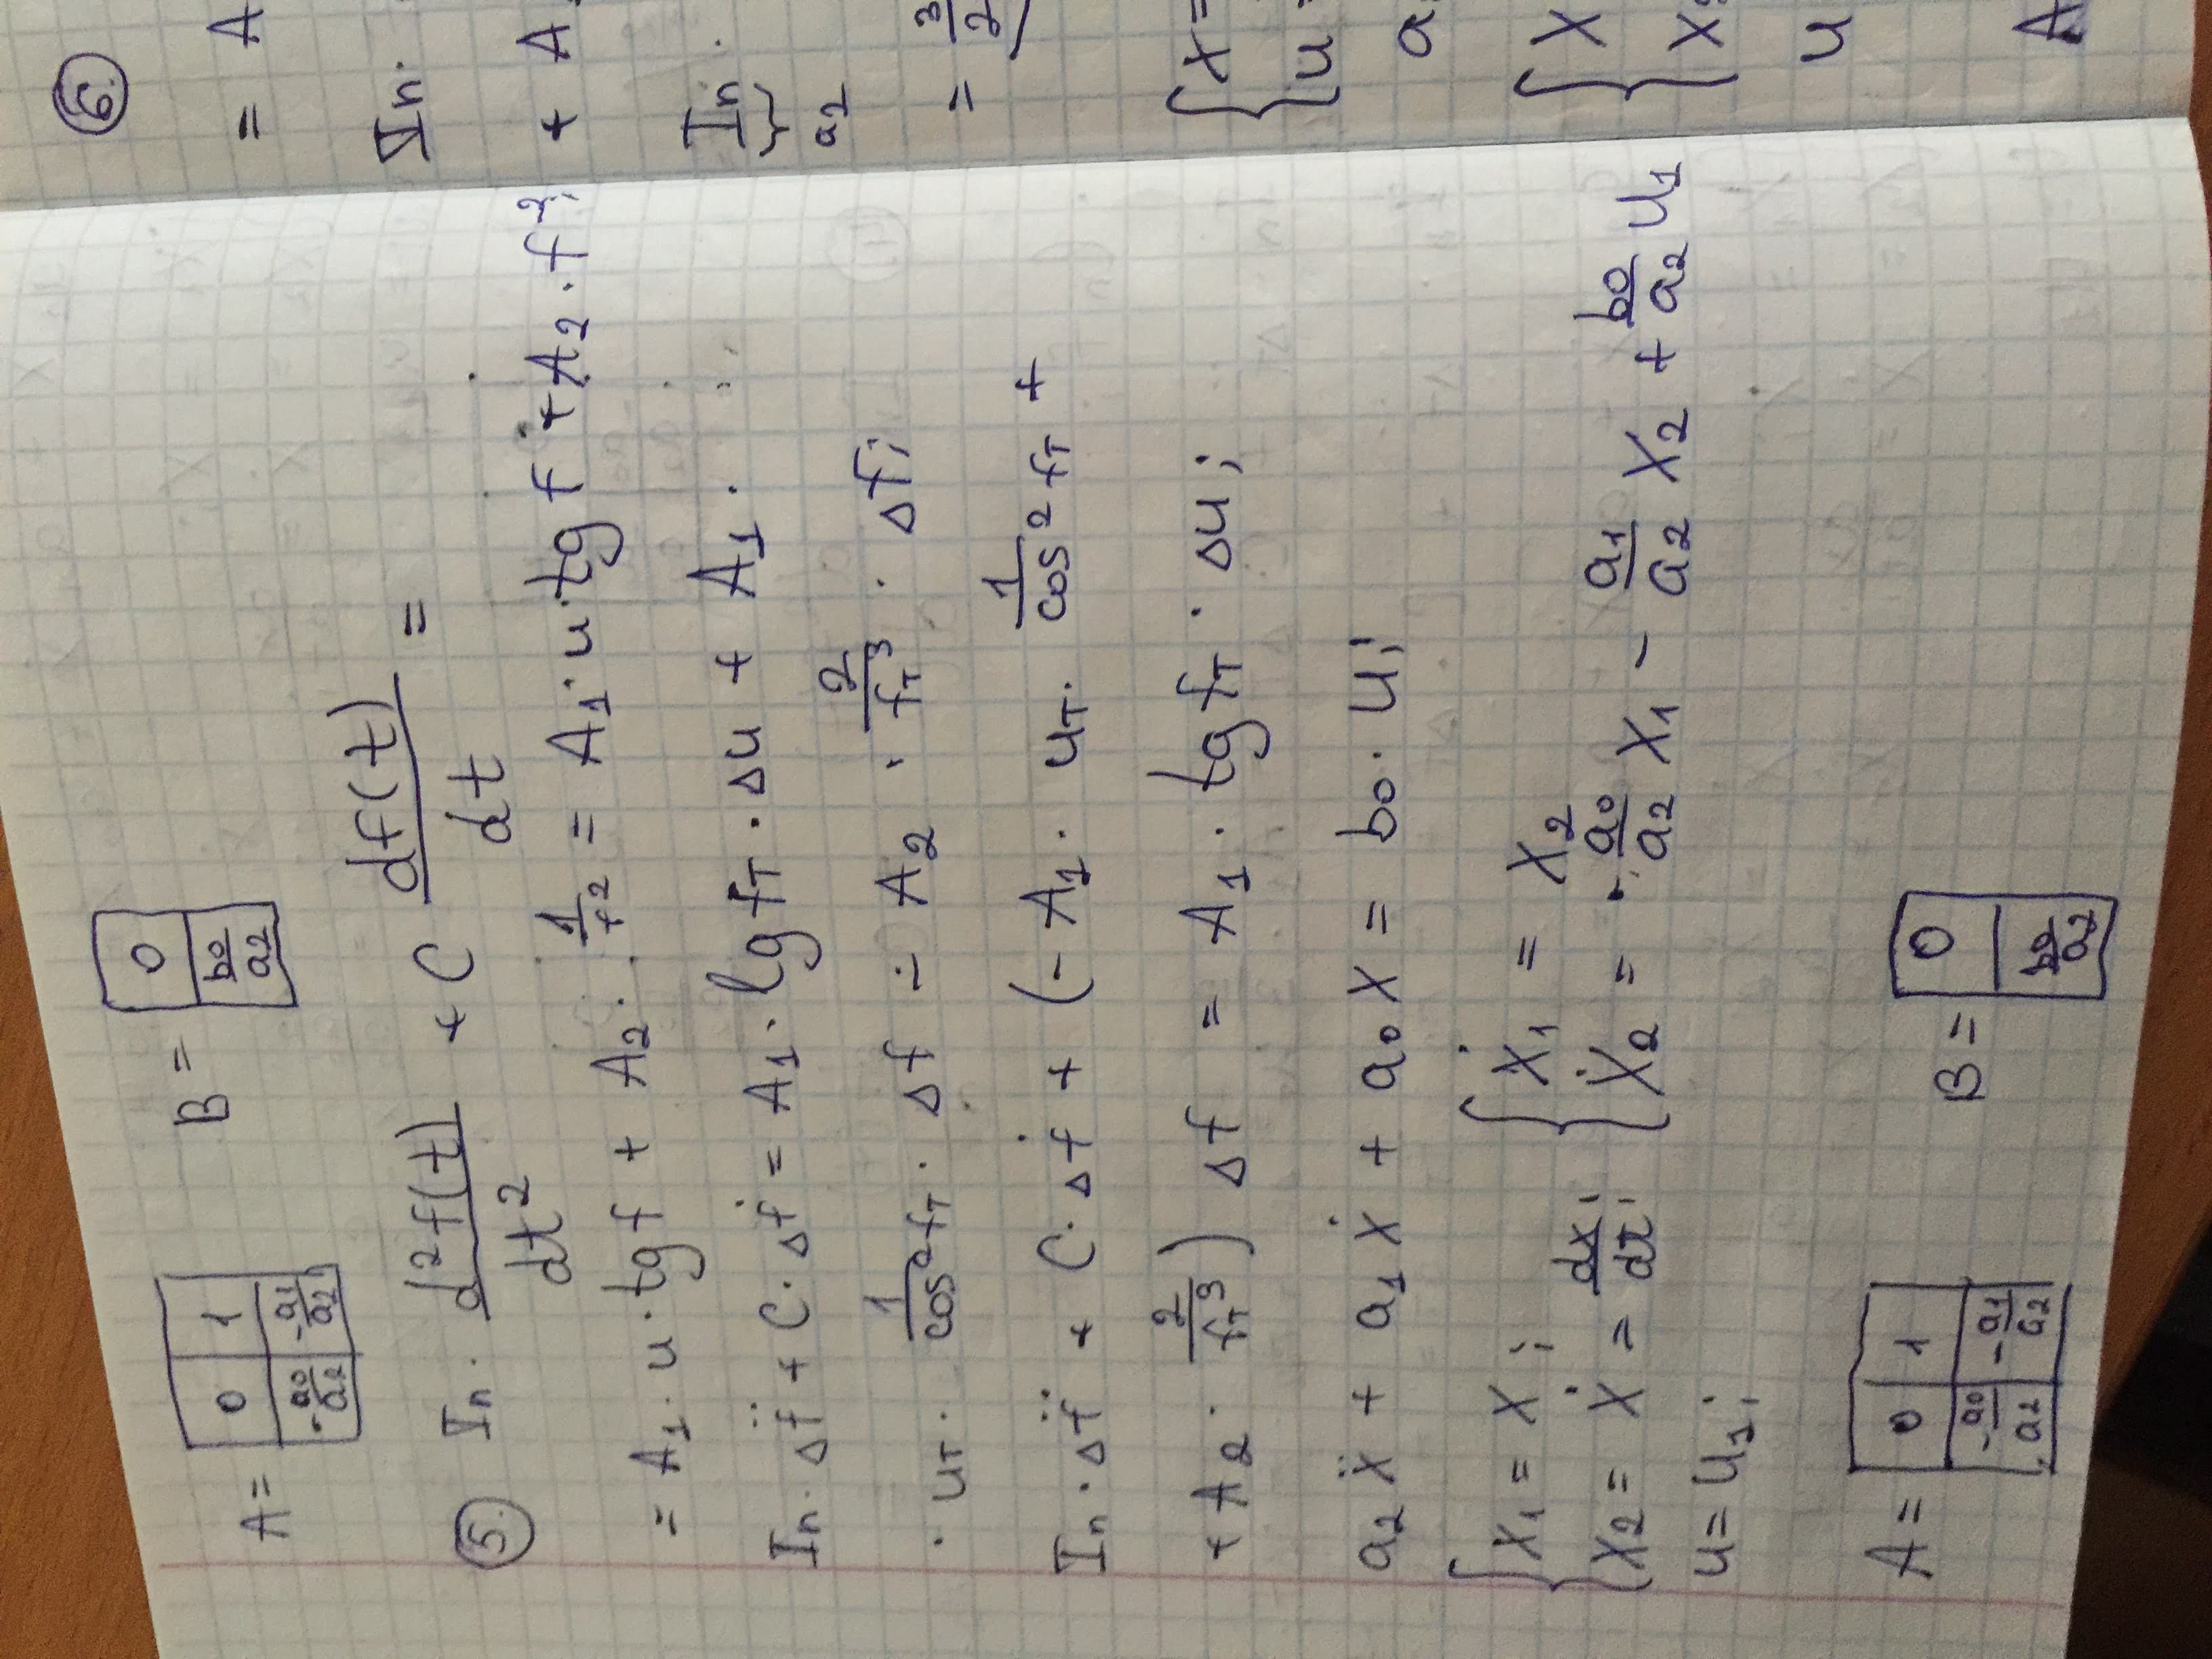 A = | 0 | 1 | -a0/a2 | -a1/a2 |
B = | 0 | b0/a2 |
5. In · d²f(t)/dt² + C df(t)/dt =
= A1 · u · tg f + A2 · 1/f² = A1 · u · tg f + A2 · f⁻²;
In · Δf̈ + C · Δḟ = A1 · lg fт · Δu + A1 ·
· uт · 1/cos² fт · Δf - A2 · 2/fт³ · Δf;
In · Δf̈ + C · Δḟ + (- A1 · uт · 1/cos² fт +
+ A2 · 2/fт³) Δf = A1 · tg fт · Δu;
a2 ẍ + a1 ẋ + a0 x = b0 · u;
{ x1 = x;
x2 = ẋ = dx/dt;
u = u1;
{ ẋ1 = x2
ẋ2 = - a0/a2 x1 - a1/a2 x2 + b0/a2 u1
A = | 0 | 1 | -a0/a2 | -a1/a2 |
B = | 0 | b0/a2 |
6.
= A
In ·
+ A
In ·
a2
= 3/2
{ x =
u
a
{ x
x
u
A